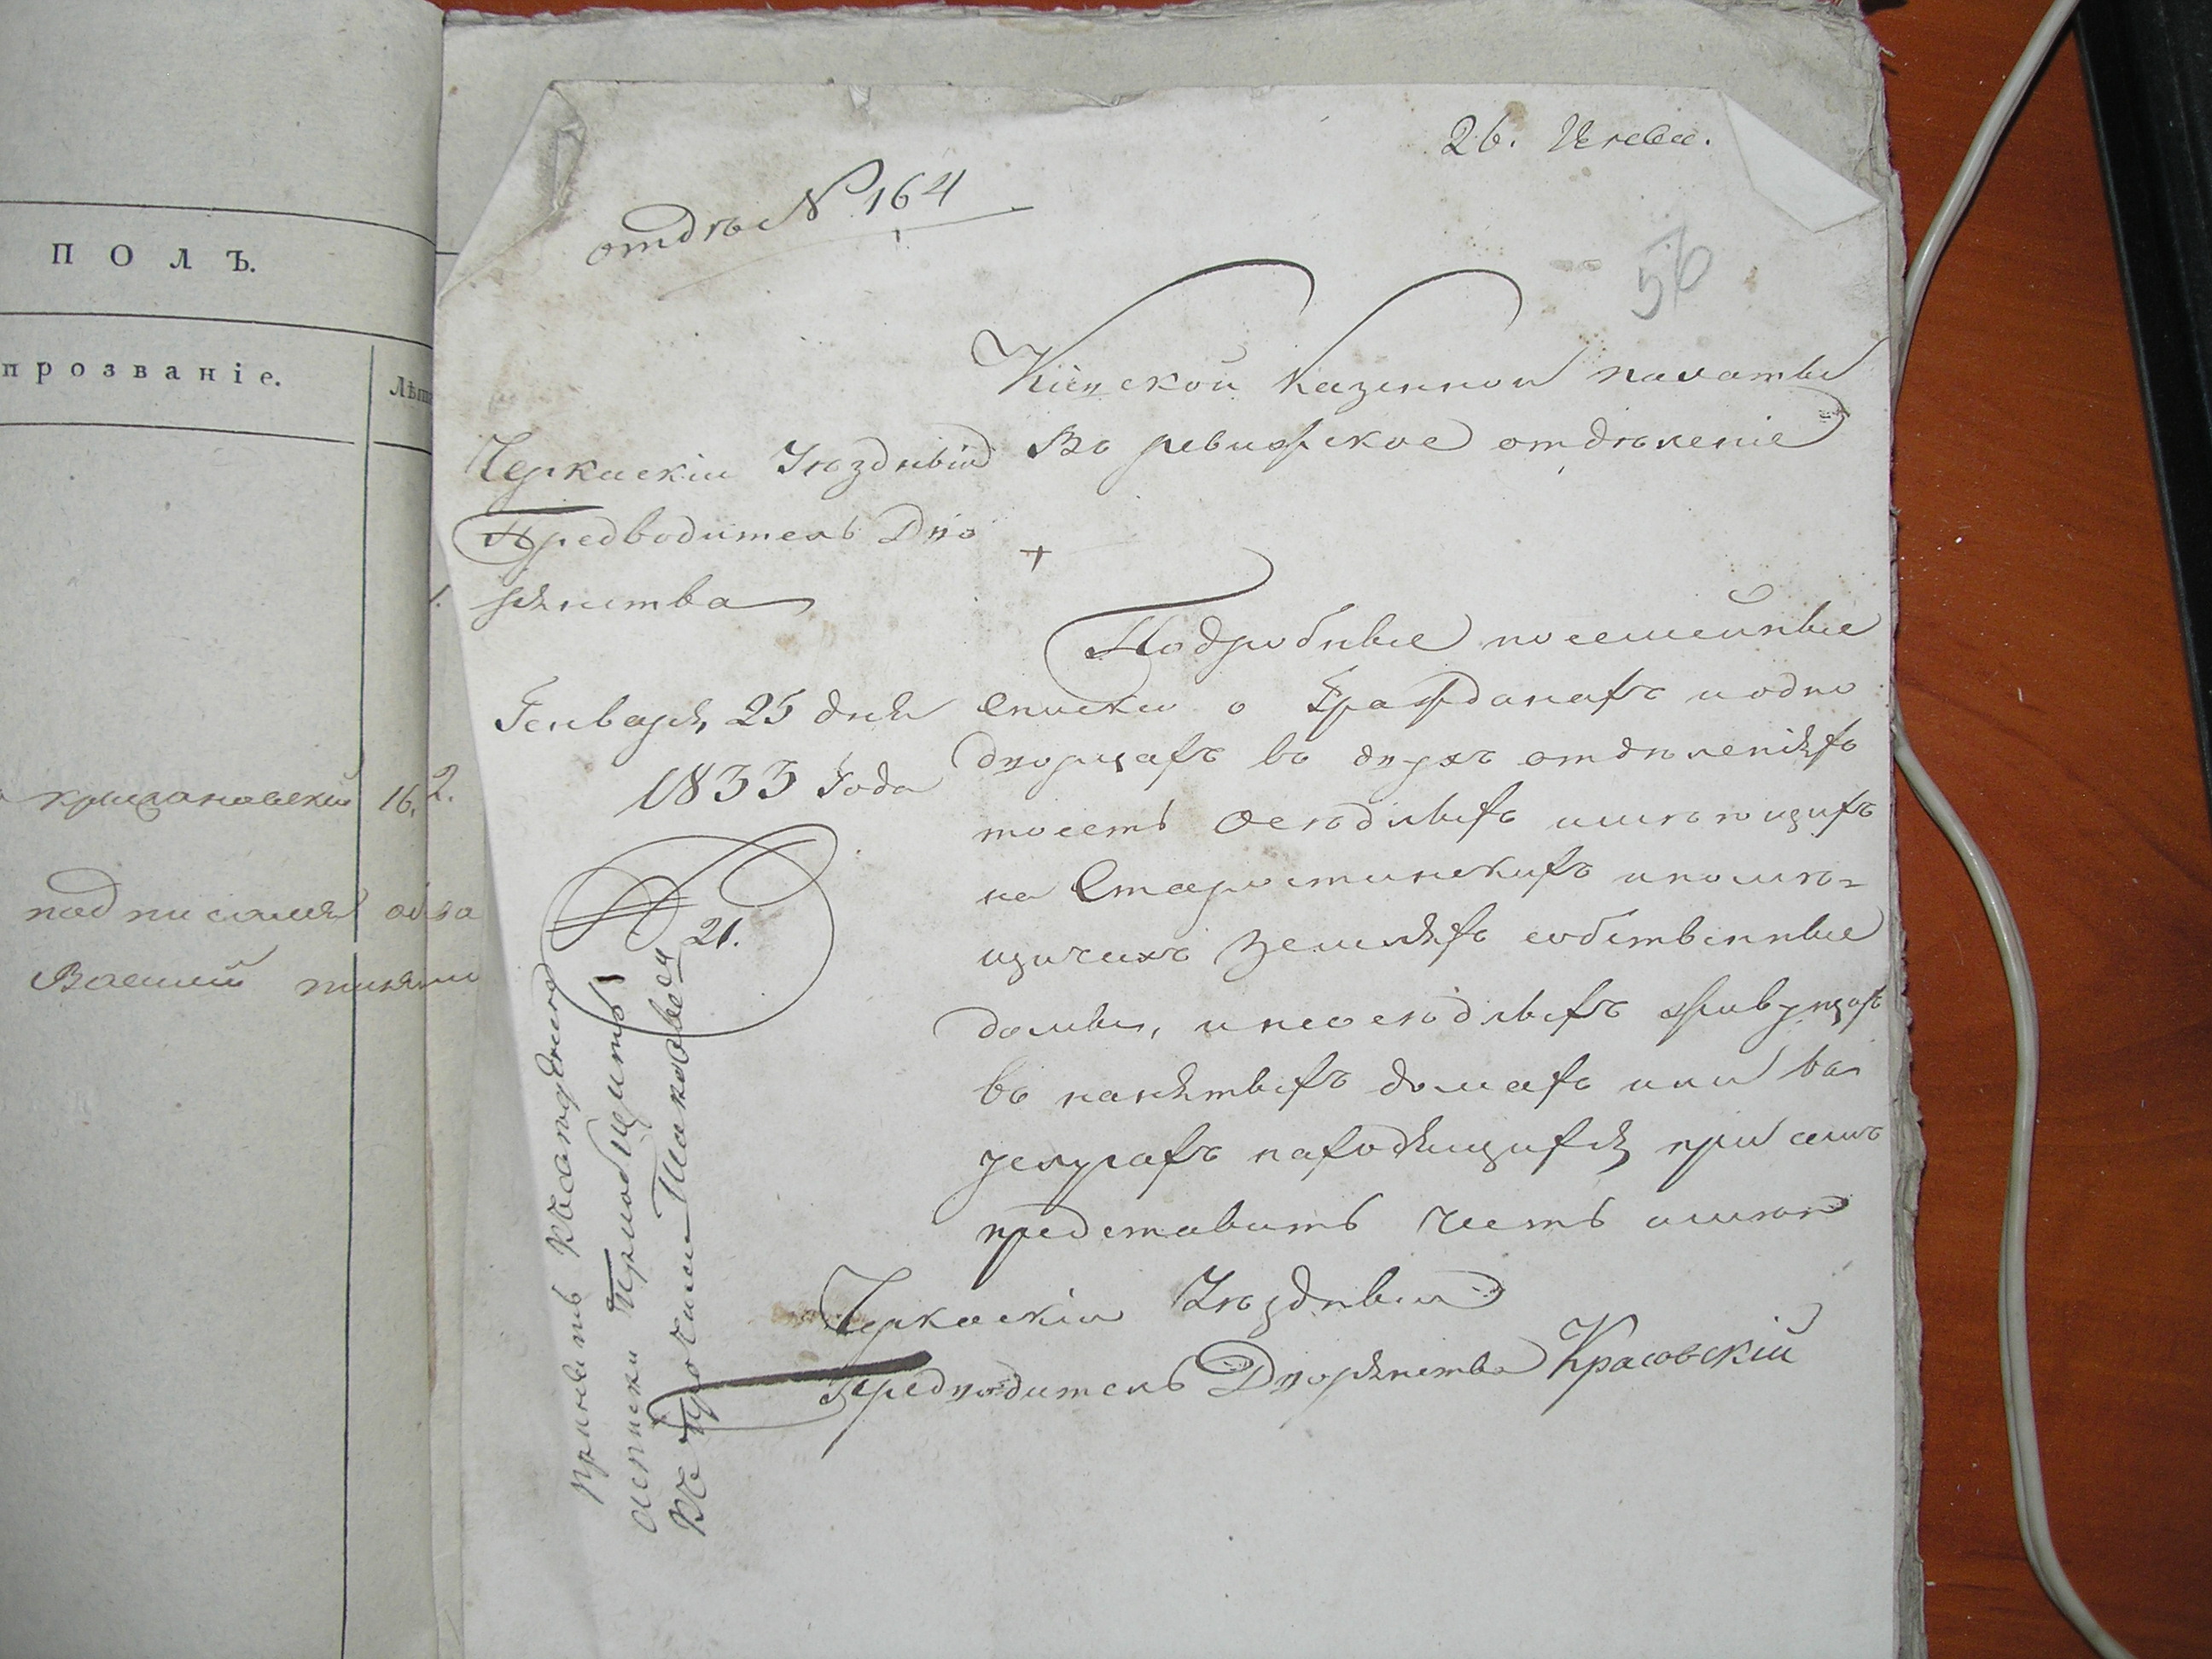 ПОЛЪ.
прозваніе.
Лѣт
16.
2.
подписался
26. Генва.
отдѣ № 164
56
Кіевской Казенной палаты
Въ ревизское отдѣленіе
Черкаскій Уѣздный
Предводитель Дво
рянства
Генваря 25 дня
1833 Года
№ 21.
Подробные посемейные
списки о Гражданахъ и одно
дворцахъ въ двухъ отдѣленіяхъ
то есть осѣдлыхъ имѣющихъ
на Старостинскихъ и помѣ=
щичихъ земляхъ собственные
домы, и неосѣдлыхъ живущихъ
въ нанятыхъ домахъ или въ
услугахъ находящихся при семъ
представить честь имѣю
Черкаскій Уѣздный
Предводитель Дворянства Красовскій
принять
а списки Приобщить
къ прочимъ таковымъ